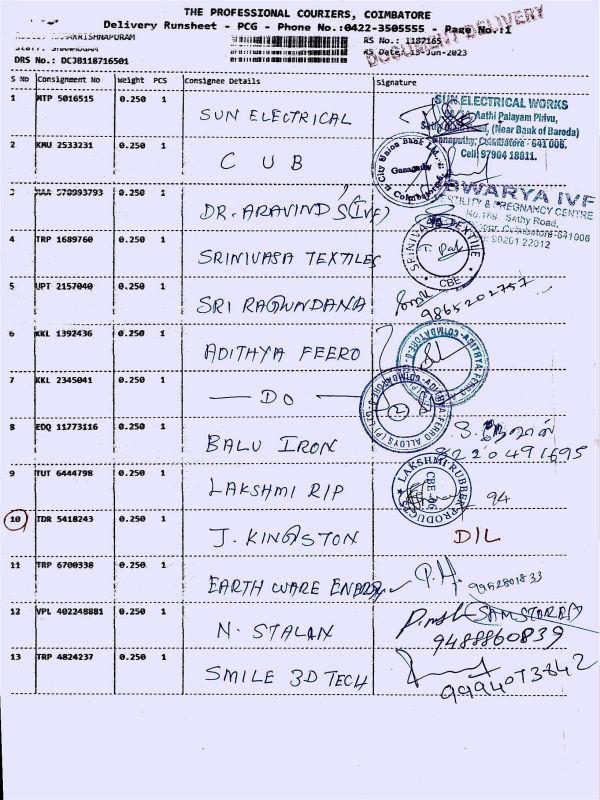 THE PROFESSIONAL COURIERS, COIMBATORE
Delivery Runsheet - PCG - Phone No.:0422-3505555 - Page No.:1
DOCUMENT DELIVERY
RS No.: 1187165
RS Date: 13-Jun-2023
DRS No.: DCJB118716501
S No Consignment No Weight PCS Consignee Details Signature
1 MTP 5016515 0.250 1 SUN ELECTRICAL
SUN ELECTRICAL WORKS
Aathi Palayam Pirivu,
(Near Bank of Baroda)
Ganapathy, Coimbatore - 641 006.
Cell: 97904 18611.
2 KMU 2533231 0.250 1 C U B
City Union Bank Ltd.
Ganapathy
Coimbatore
3 570993793 0.250 1 DR. ARAVIND'S (IVF)
SWARYA IVF
FERTILITY & PREGNANCY CENTRE
Sathy Road,
Coimbatore-641006
90261 22012
4 TRP 1689760 0.250 1 SRINIVASA TEXTILES
SRINIVASA TEXTILE
CBE
5 UPT 2157040 0.250 1 SRI RAGUNDANA
9865202757
6 KKL 1392436 0.250 1 ADITHYA FEERO
7 KKL 2345041 0.250 1 — DO —
ADITHYA FERRO ALLOYS (P) LTD
COIMBATORE
2
8 EDQ 11773116 0.250 1 BALU IRON
8220491695
9 TUT 6444798 0.250 1 LAKSHMI RIP
LAKSHMI RUBBER PRODUCTS
CBE-06
94
10 TDR 5418243 0.250 1 J. KINGSTON DIL
11 TRP 6700338 0.250 1 EARTH WARE P.H. 9952801833
12 VPL 402248881 0.250 1 N. STALAN
9488860839
13 TRP 4824237 0.250 1 SMILE 3D TECH
9994073842